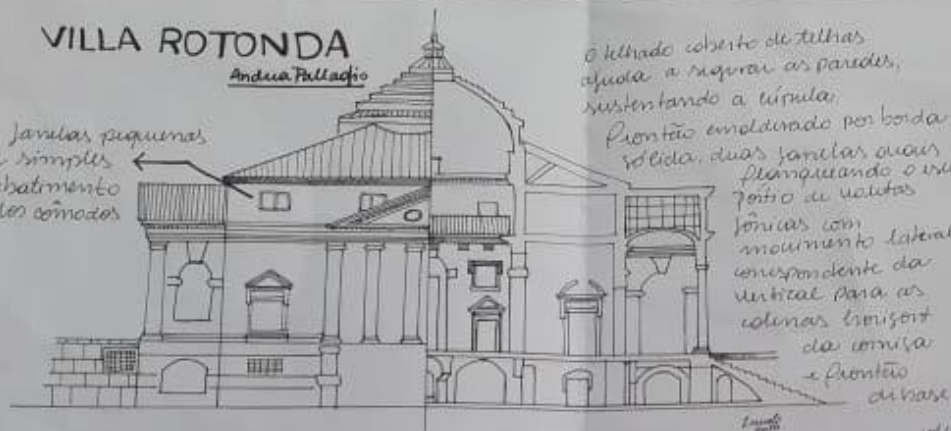 VILLA ROTONDA
Andrea Palladio
Janelas pequenas
simples
batimento
dos cômodos
O telhado coberto de telhas
ajuda a segurar as paredes,
sustentando a cúpula.
Frontão emoldurado por borda
sólida, duas janelas ovais
flanqueando o
Pórtio de volutas
Jônicas com
movimento lateral
correspondente da
vertical para as
colunas horizont
da cornija
e frontão
di base